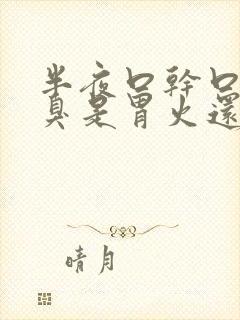 半夜口幹口
真是冒火還
晴月